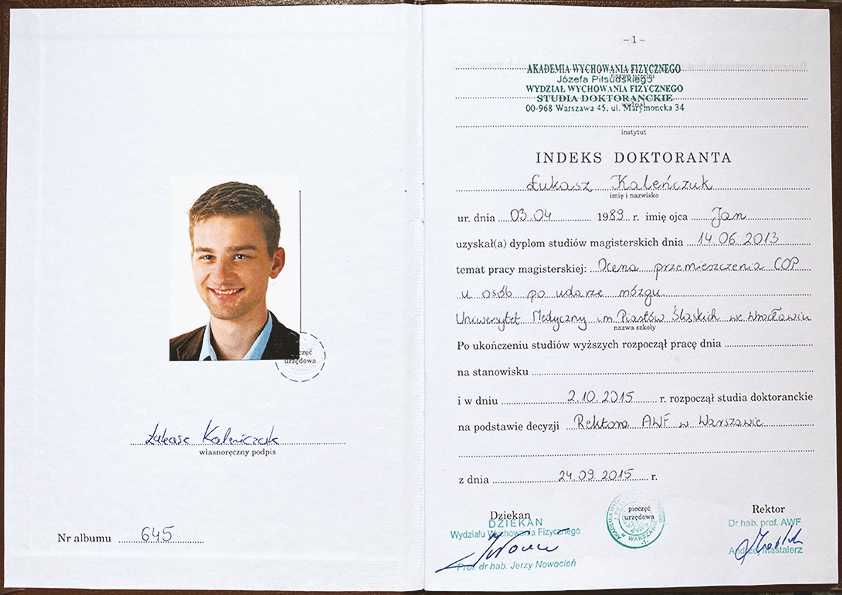 pieczęć
urzędowa
Łukasz Kaleńczuk
własnoręczny podpis
Nr albumu 645
– 1 –
AKADEMIA WYCHOWANIA FIZYCZNEGO
Józefa Piłsudskiego
WYDZIAŁ WYCHOWANIA FIZYCZNEGO
STUDIA DOKTORANCKIE
00-968 Warszawa 45, ul. Marymoncka 34
instytut
INDEKS DOKTORANTA
Łukasz Kaleńczuk
imię i nazwisko
ur. dnia 03.04 1989 r. imię ojca Jan
uzyskał(a) dyplom studiów magisterskich dnia 14.06.2013
temat pracy magisterskiej: Ocena przemieszczenia COP
u osób po udarze mózgu
Uniwersytet Medyczny im Piastów Śląskich we Wrocławiu
nazwa szkoły
Po ukończeniu studiów wyższych rozpoczął pracę dnia
na stanowisku
i w dniu 2.10.2015 r. rozpoczął studia doktoranckie
na podstawie decyzji Rektora AWF w Warszawie
z dnia 24.09.2015 r.
Dziekan
DZIEKAN
Wydziału Wychowania Fizycznego
Prof. dr hab. Jerzy Nowocień
pieczęć
urzędowa
Rektor
Dr hab. prof. AWF
Andrzej Mastalerz